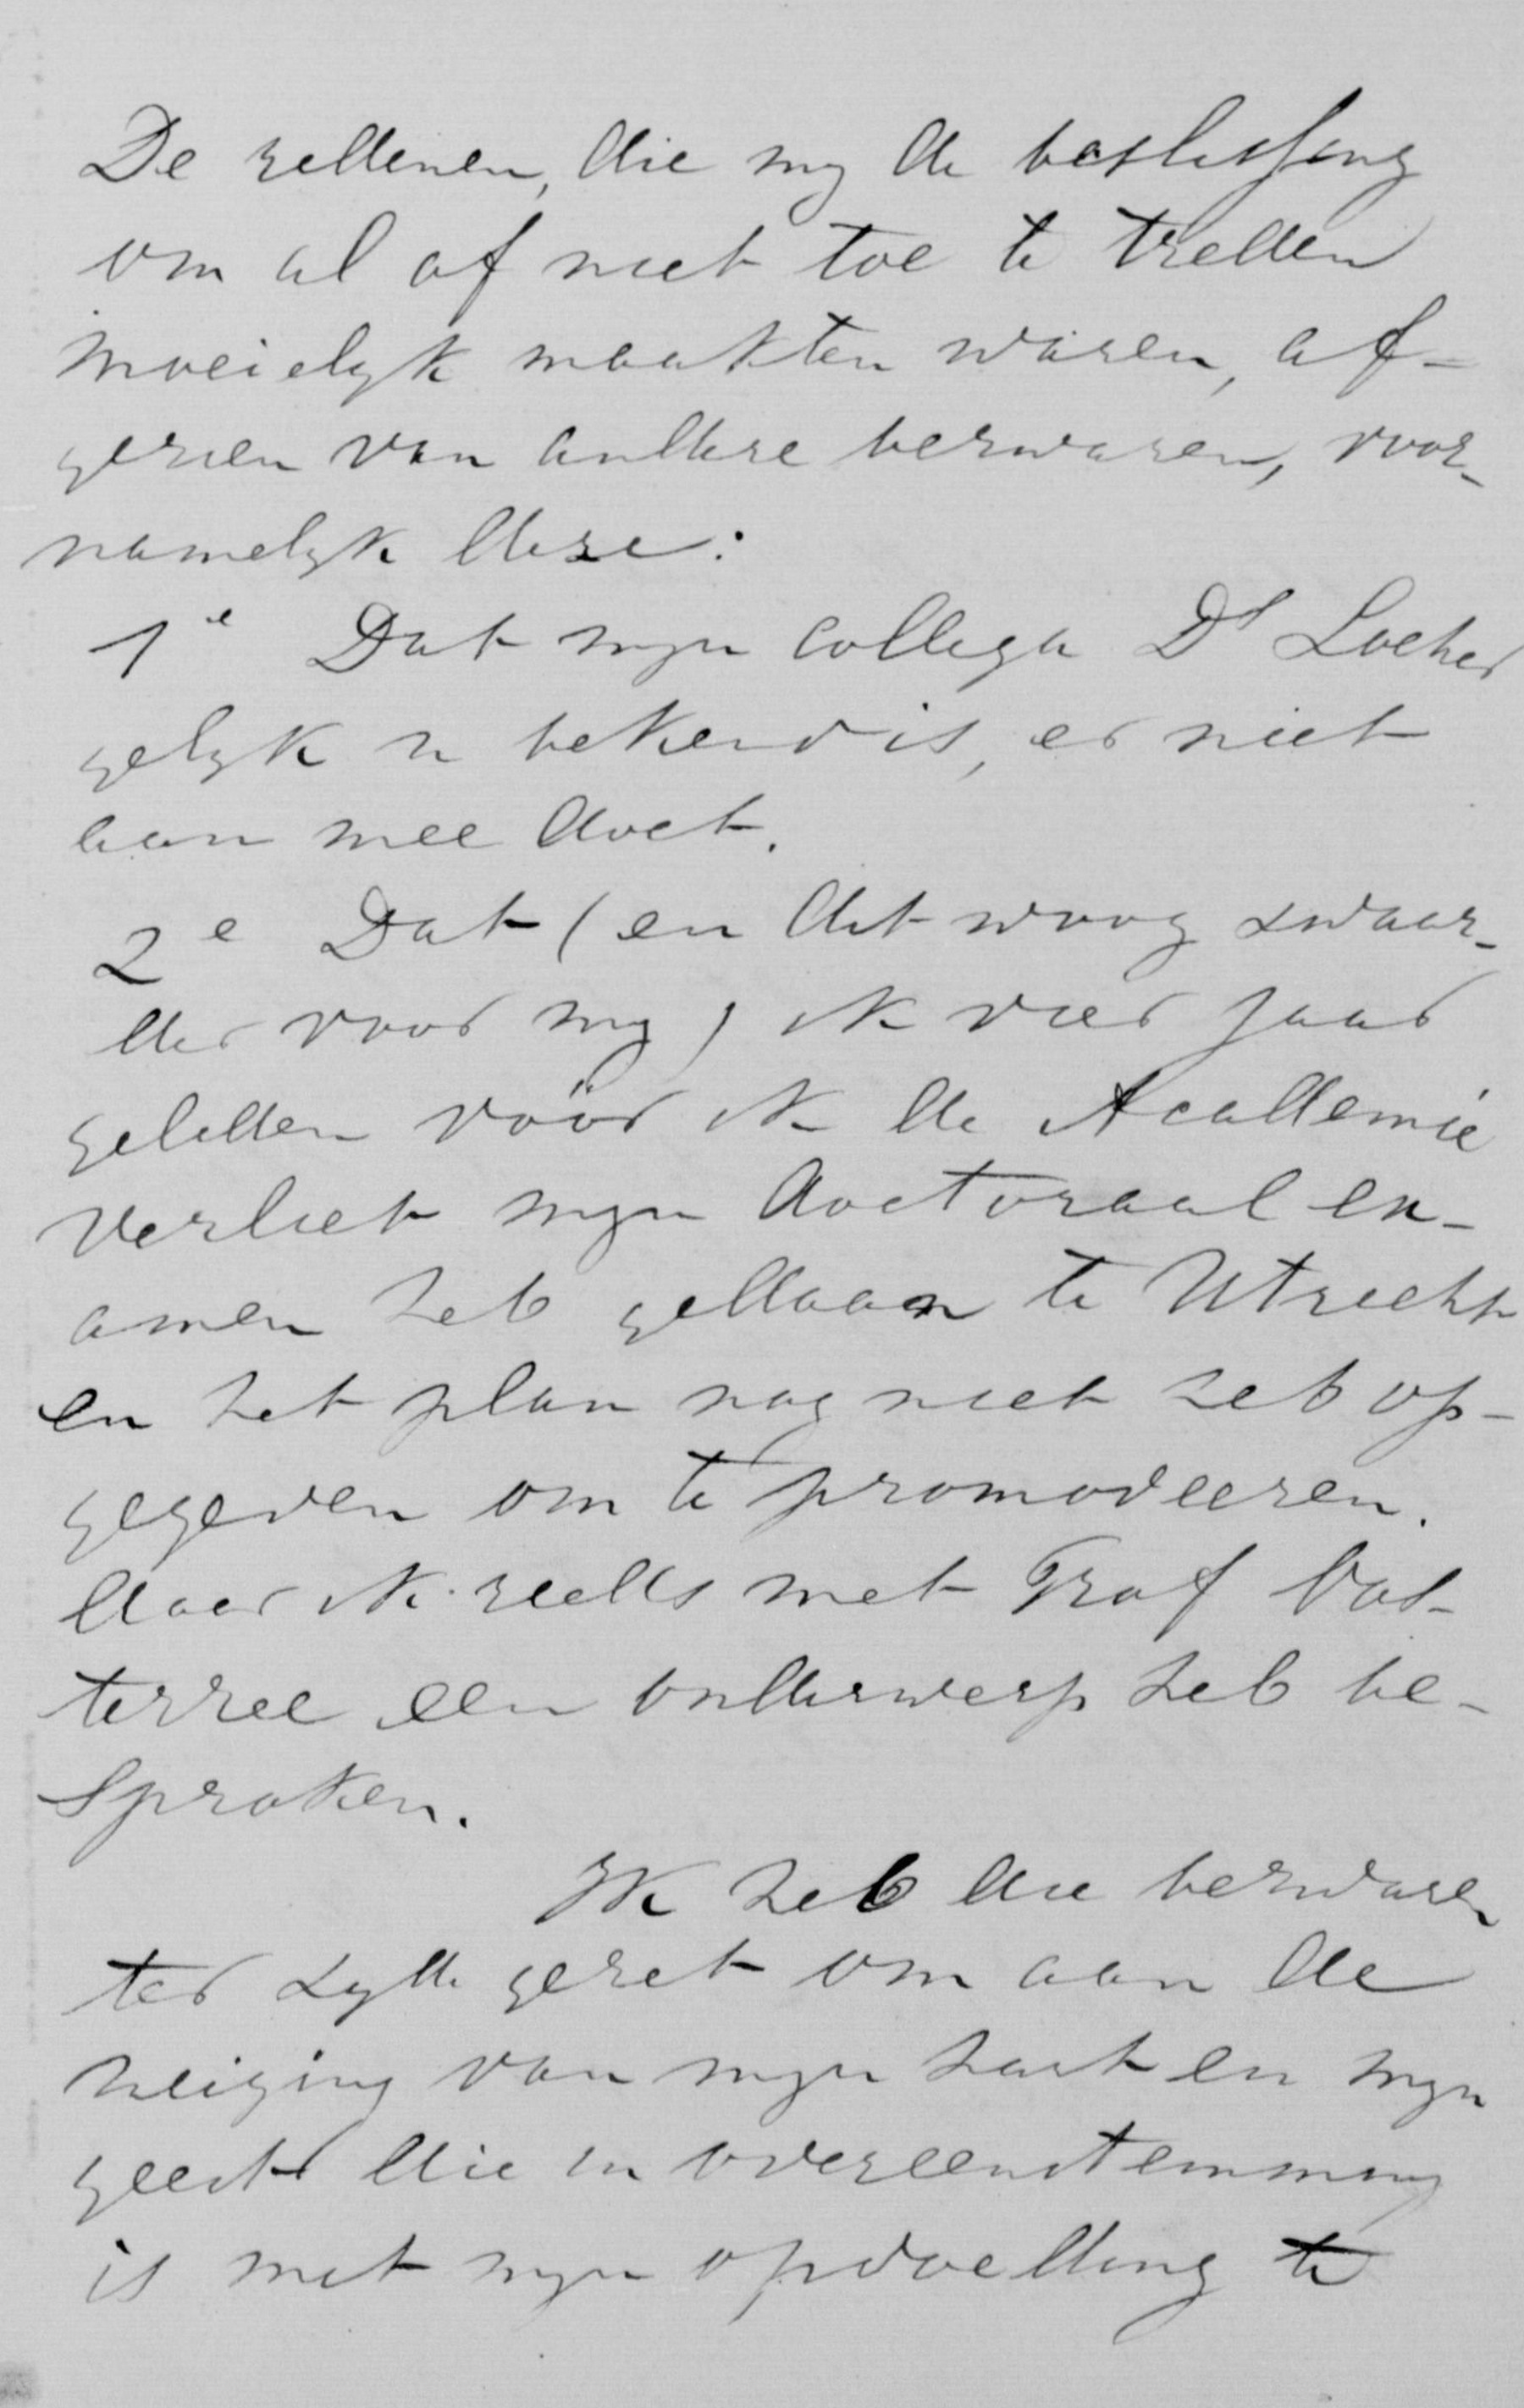 De redenen, die my de beslissing
om al of niet toe te treden
moeielyk maakten waren, af-
gezien van andere bezwaren, voor-
namelyk deze:
1e Dat myn collega Ds Locher
gelyk u bekend is, er niet
aan mee doet.
2e Dat (en dit woog zwaar-
der voor my) ik vier jaar
geleden vóór ik de Academie
verliet myn doctoraal ex-
amen heb gedaan te Utrecht
en het plan nog niet heb op-
gegeven om te promoveeren.
daar ik reeds met Prof Val-
ter een onderwerp heb be-
sproken.
Ik heb die bezwaren
ter zyde gezet om aan de
neiging van myn hart en myn
geest die in overeenstemming
is met myn opvoeding te